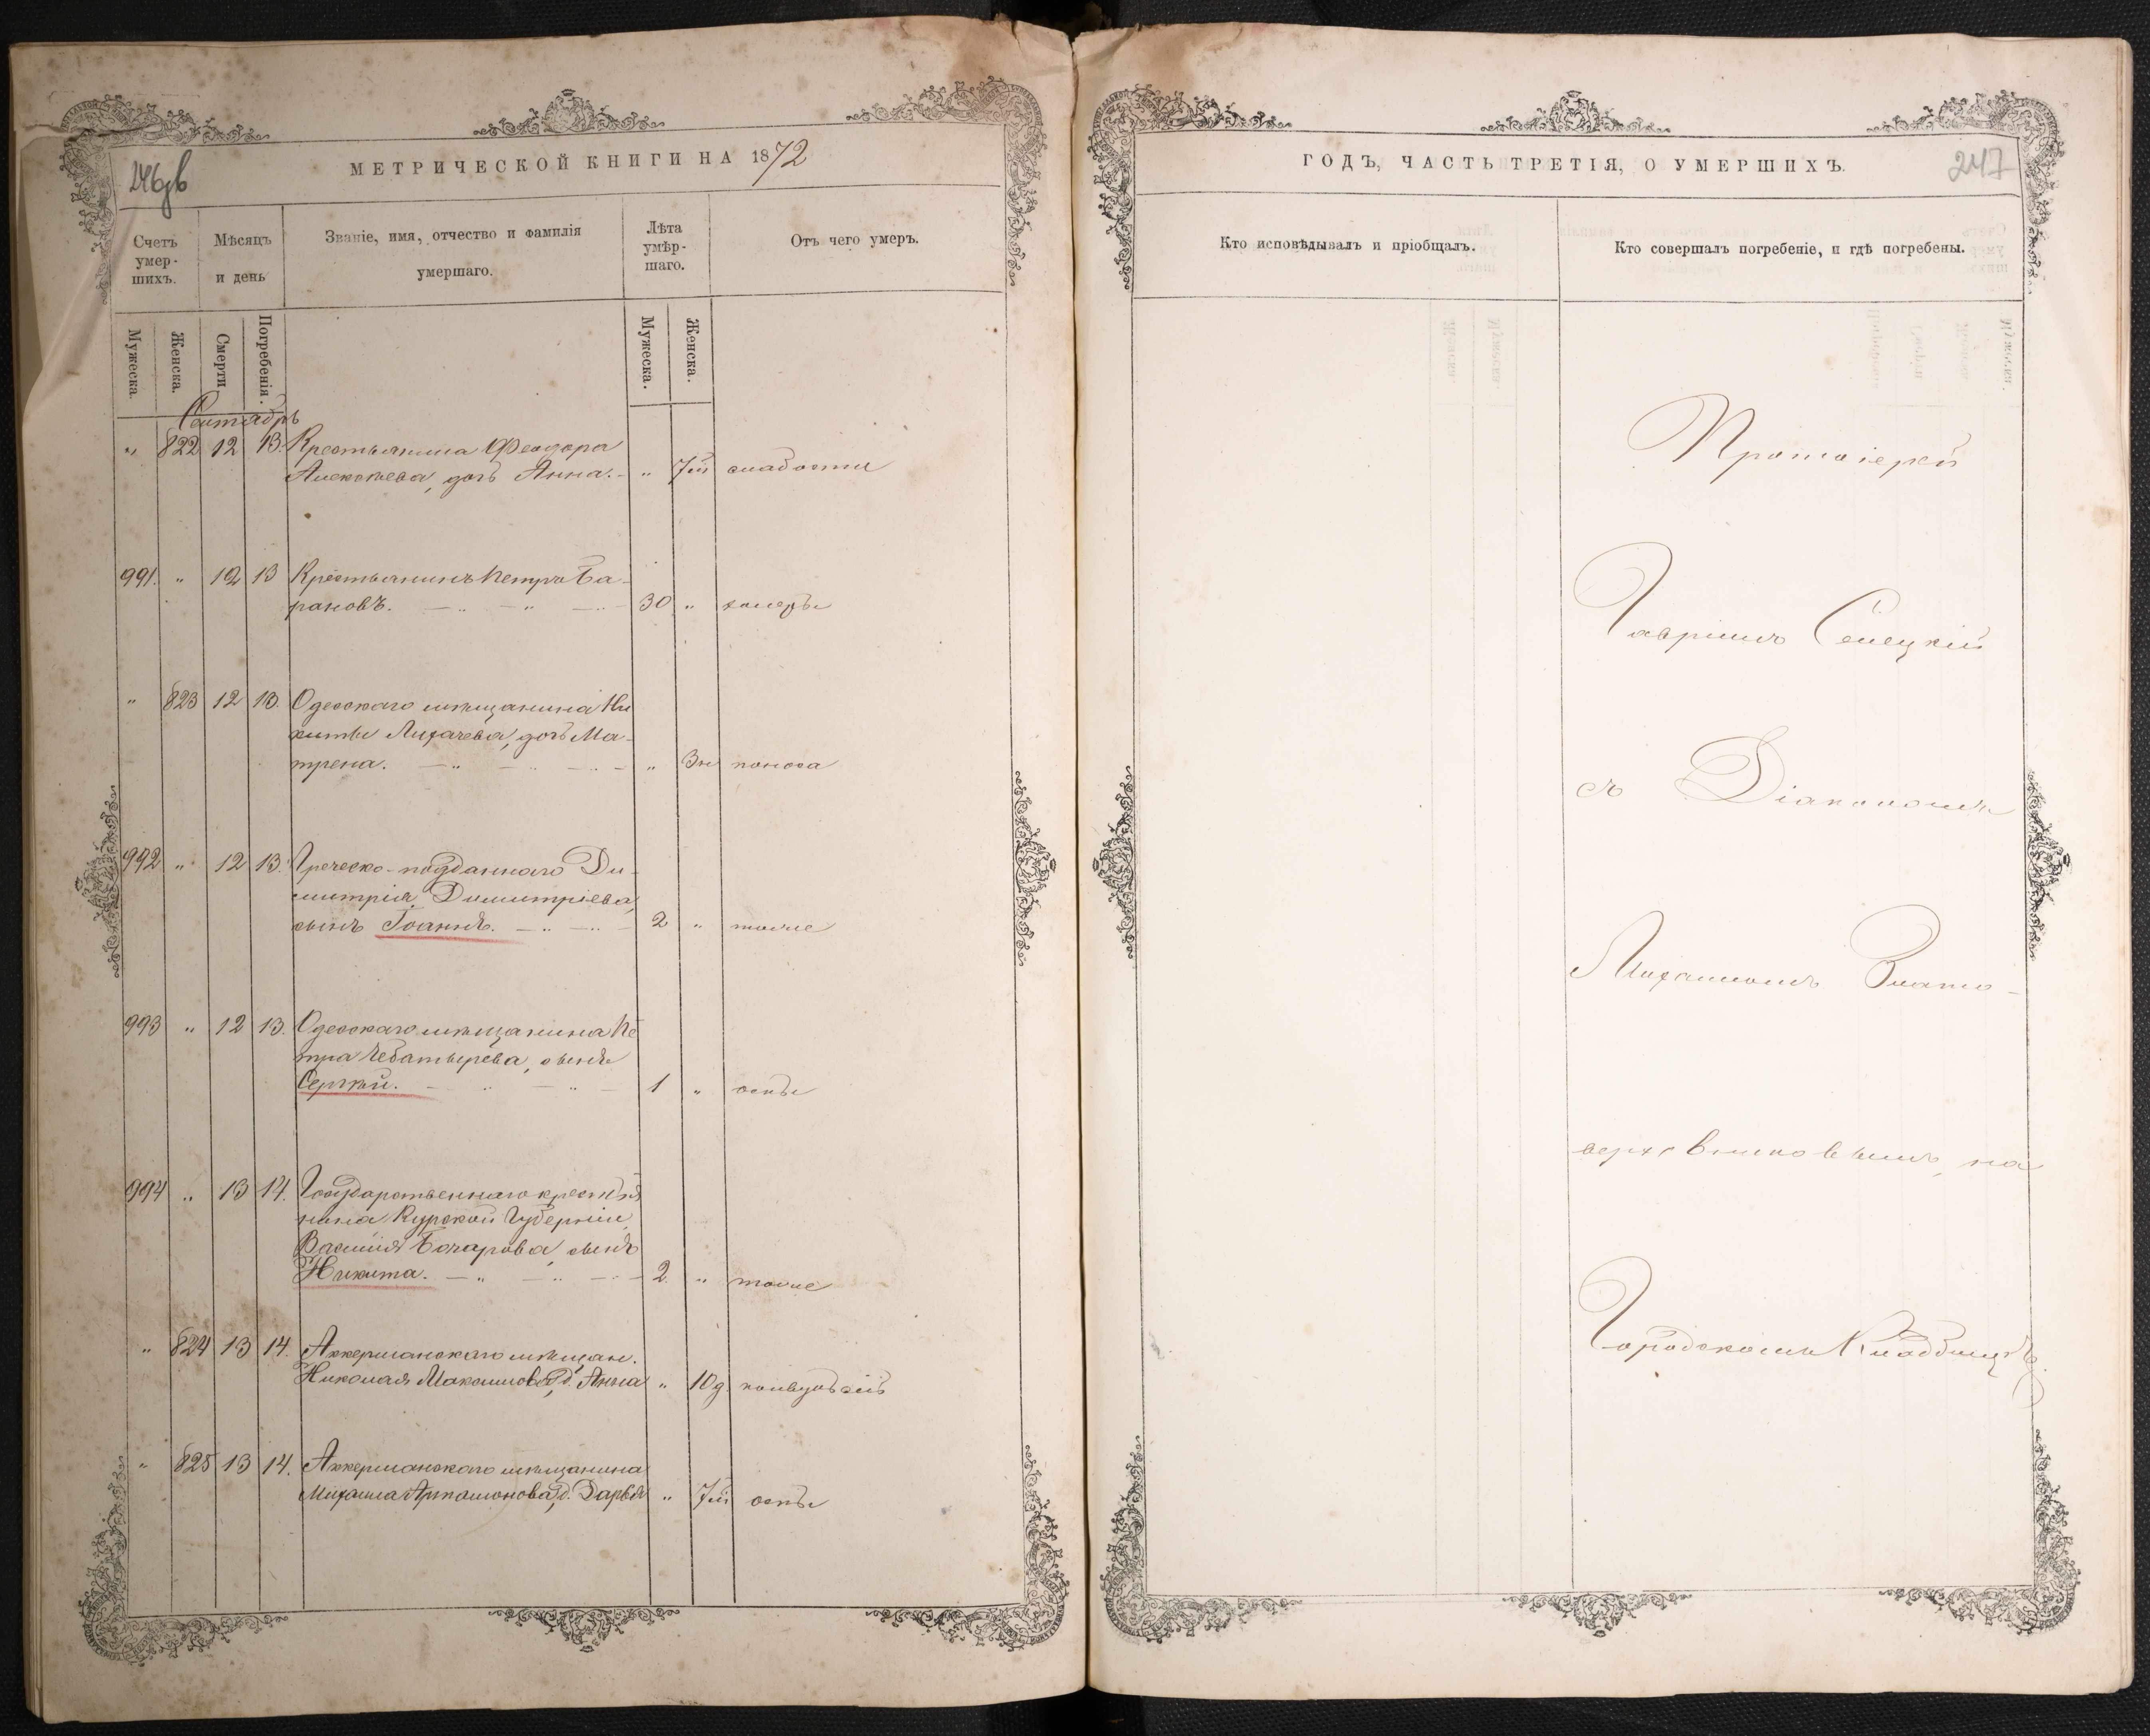 246 об
МЕТРИЧЕСКОЙ КНИГИ НА 1872
Счетъ умер-шихъ.
Мѣсяцъ и день
Званіе, имя, отчество и фамилія умершаго.
Лѣта умѣр-шаго.
Отъ чего умеръ.
Мужеска.
Женска.
Смерти
Погребенія.
Мужеска.
Женска.
Сентябрь
" 822 12 13. Крестьянина Ѳеодора
Алексѣева, дочь Анна. " 7м слабости
991. " 12 13 Крестьянинъ Петръ Ба-
рановъ. 30 " холеры
" 823 12 13. Одесскаго мѣщанина Ни
киты Лихачева, дочь Ма-
трена. " 3н поноса
992 " 12 13. Греческо-подданнаго Ди-
митрія Димитріева,
сынъ Іоаннъ. 2 " тоже
993 " 12 13. Одесскаго мѣщанина Пе
тра Чеботырева, сынъ
Сергѣй. 1 " оспы
994 " 13 14. Государственнаго крестья
нина Курской Губерніи,
Василія Бочарова, сынъ
Никита. 2 " тоже
" 824 13 14. Аккерманскаго мѣщан.
Николая Максимова, д. Анна " 10д. конвульсій
" 825 13 14. Аккерманскаго мѣщанина
Михаила Артамонова, д. Дарья " 7м оспы
ГОДЪ, ЧАСТЬ ТРЕТІЯ, О УМЕРШИХЪ.
247
Кто исповѣдывалъ и пріобщалъ.
Кто совершалъ погребеніе, и гдѣ погребены.
Протоіерей
Гавріилъ Селецкій
съ Діакономъ
Михаиломъ Злато-
верховниковымъ, на
Городскомъ Кладбищѣ.